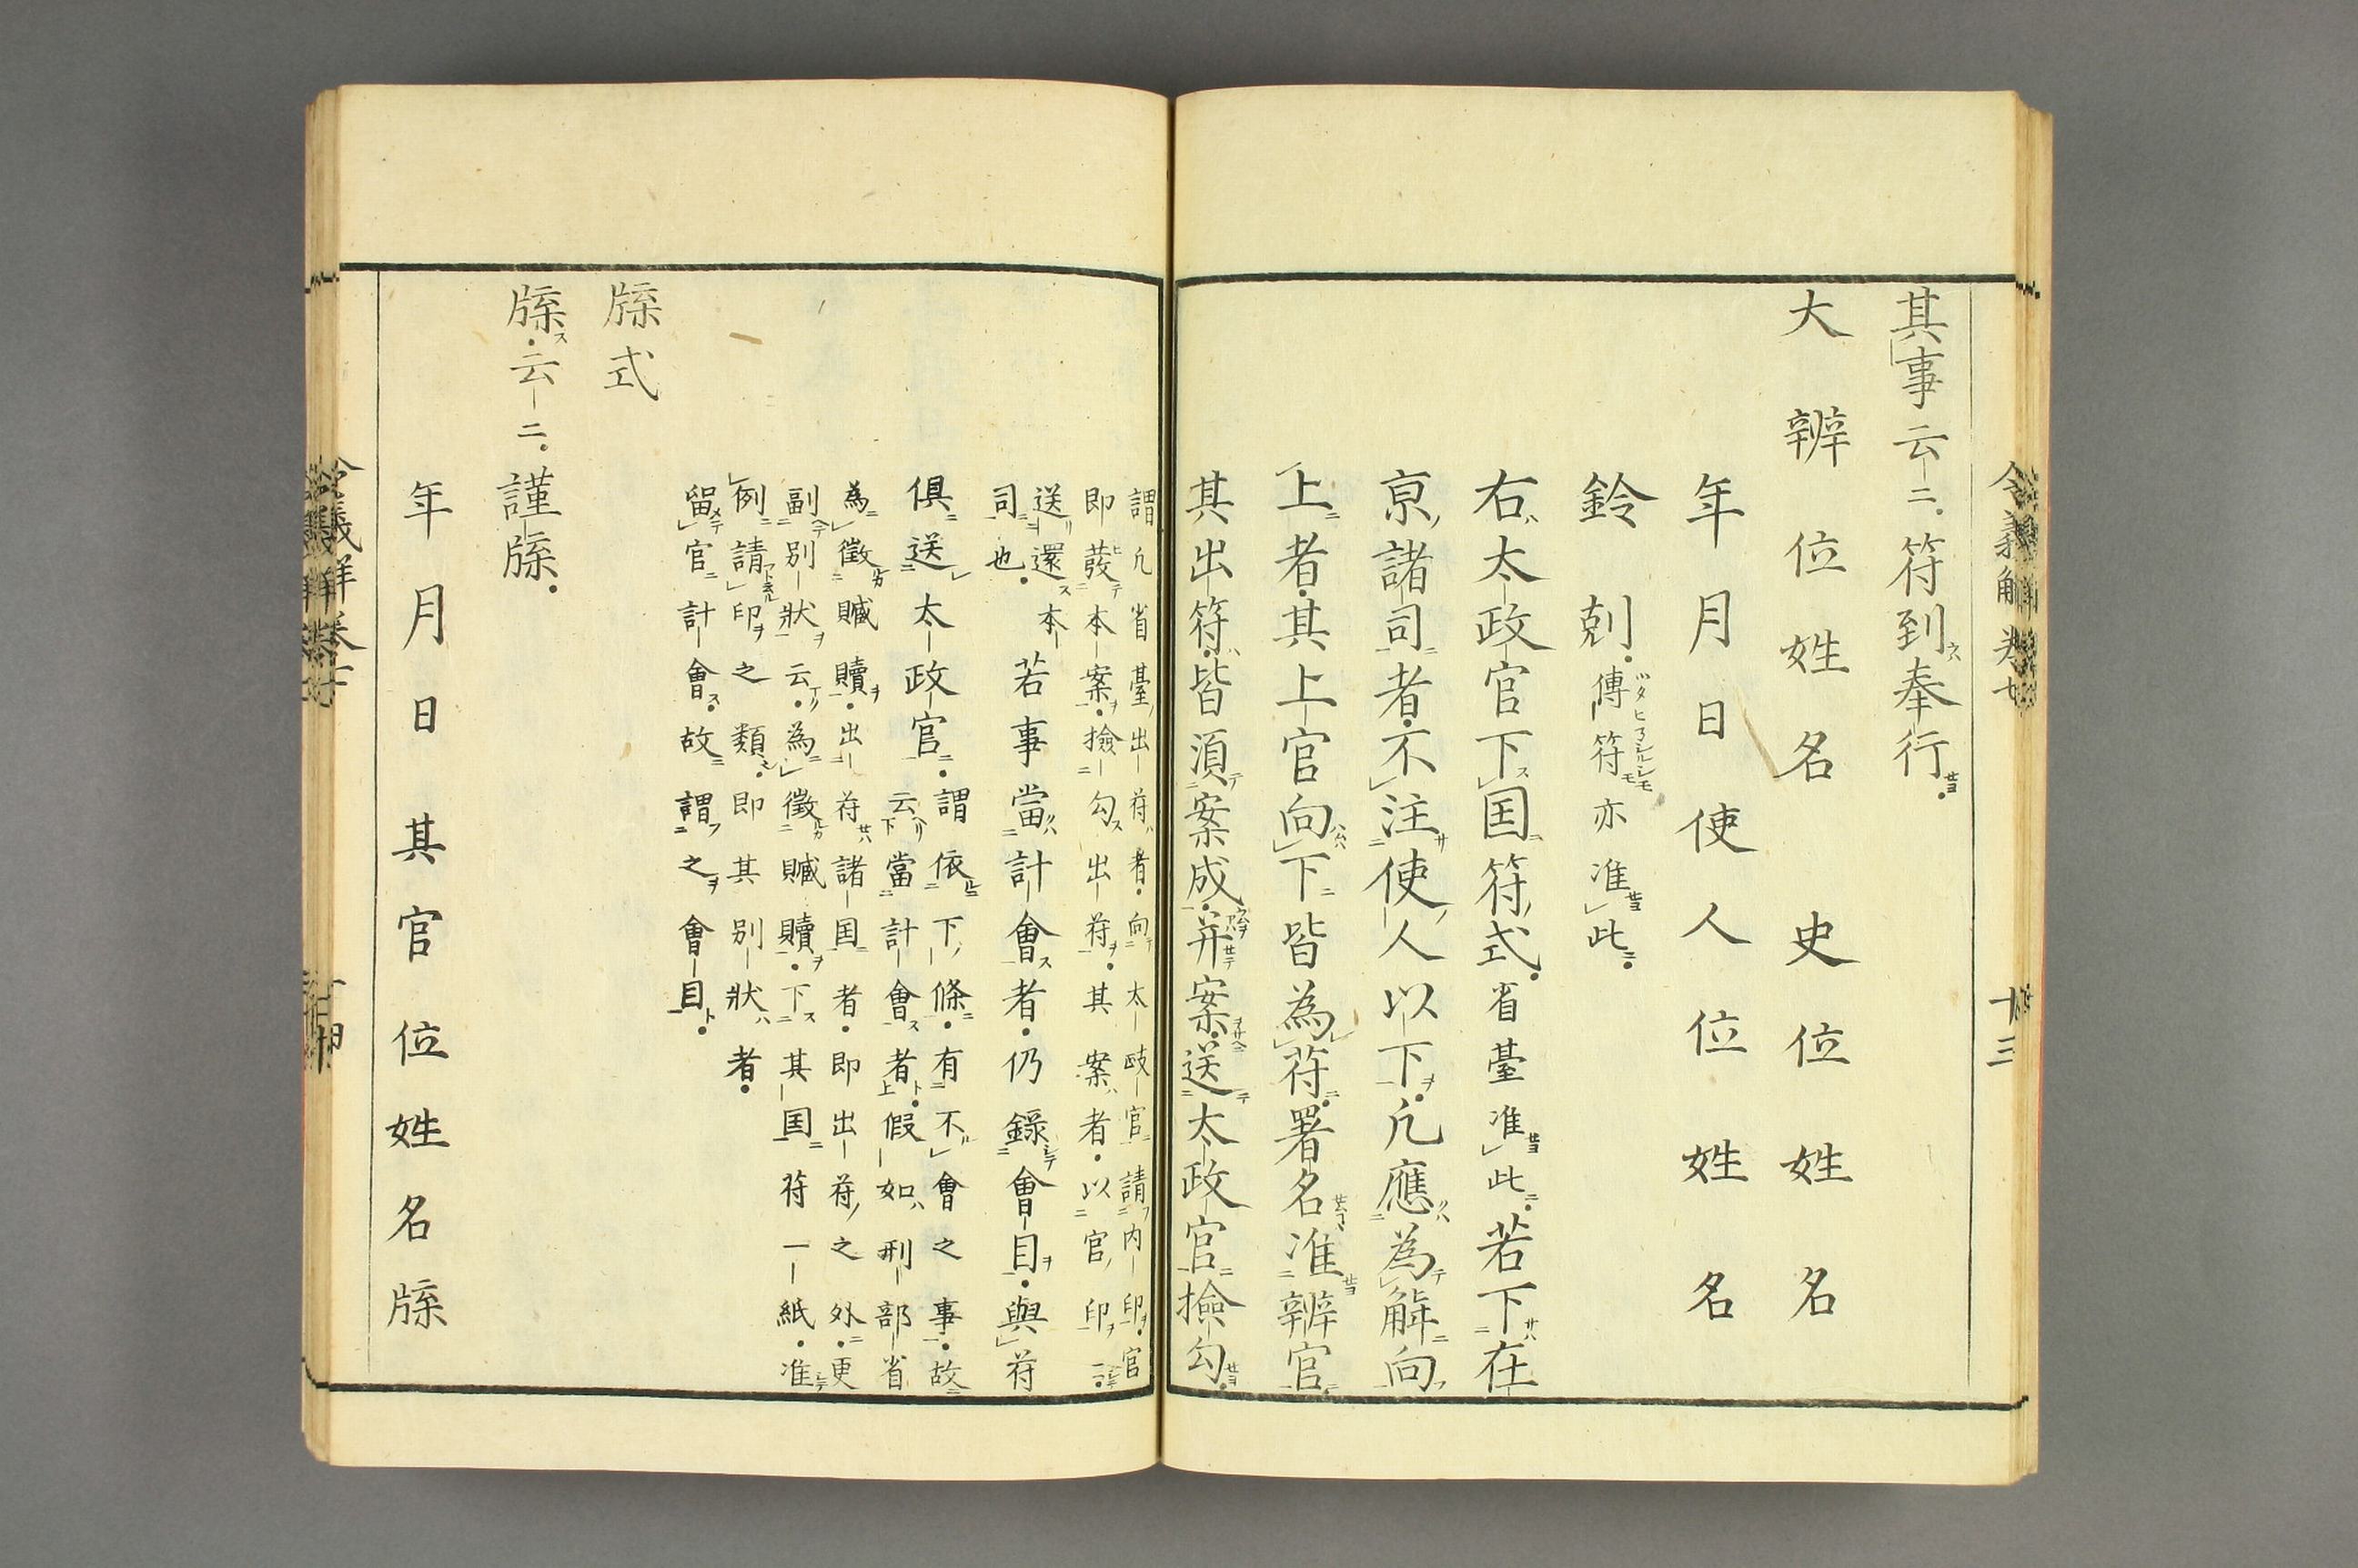 其事云二符到奉行
大辨位姓名　史位姓名
年月日使人位姓名
鈴剋傳符亦准此
右太政官下囯符式省臺准此若下在
京諸司者不注使人以下凢應為觧向
上者其上官向下皆為苻署名准辨官
其出符皆湏案成并案送太政官撿勾
謂凢省臺出苻者向太政官請内印官
即發本案撿勾出苻其案者以官印一
送還本
司也
若事當計會者仍錄會目與苻
俱送太政官
謂依下條有不會之事故
云當計會者假如刑部省
為徵贓贖出苻諸囯者即出苻之外更
副別狀云為徵贓贖下其囯苻一紙准
例請印之類即其別狀者
留官計會故謂之會目
牒式
牒云二謹牒
年月日其官位姓名牒
令義解卷七
十三